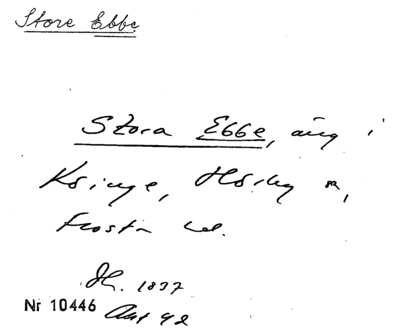 Store Ebbe
Stora Ebbe, äng i
Ksinge, Hörby sn,
Frosta hd.
Jh. 1837
Nr 10446 Akt 42